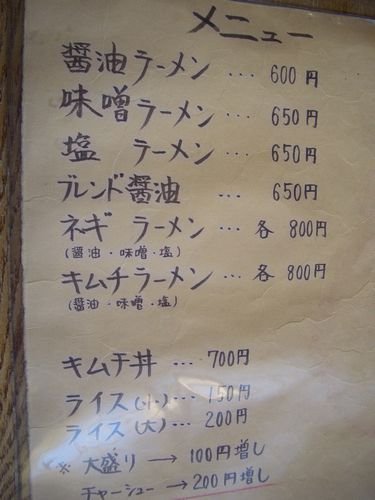 メニュー
醤油ラーメン … 600円
味噌ラーメン … 650円
塩 ラーメン … 650円
ブレンド醤油 … 650円
ネギ ラーメン … 各 800円
(醤油・味噌・塩)
キムチラーメン … 各 800円
(醤油・味噌・塩)
キムチ丼 … 700円
ライス(小)… 150円
ライス(大)… 200円
※ 大盛り → 100円増し
チャーシュー → 200円増し